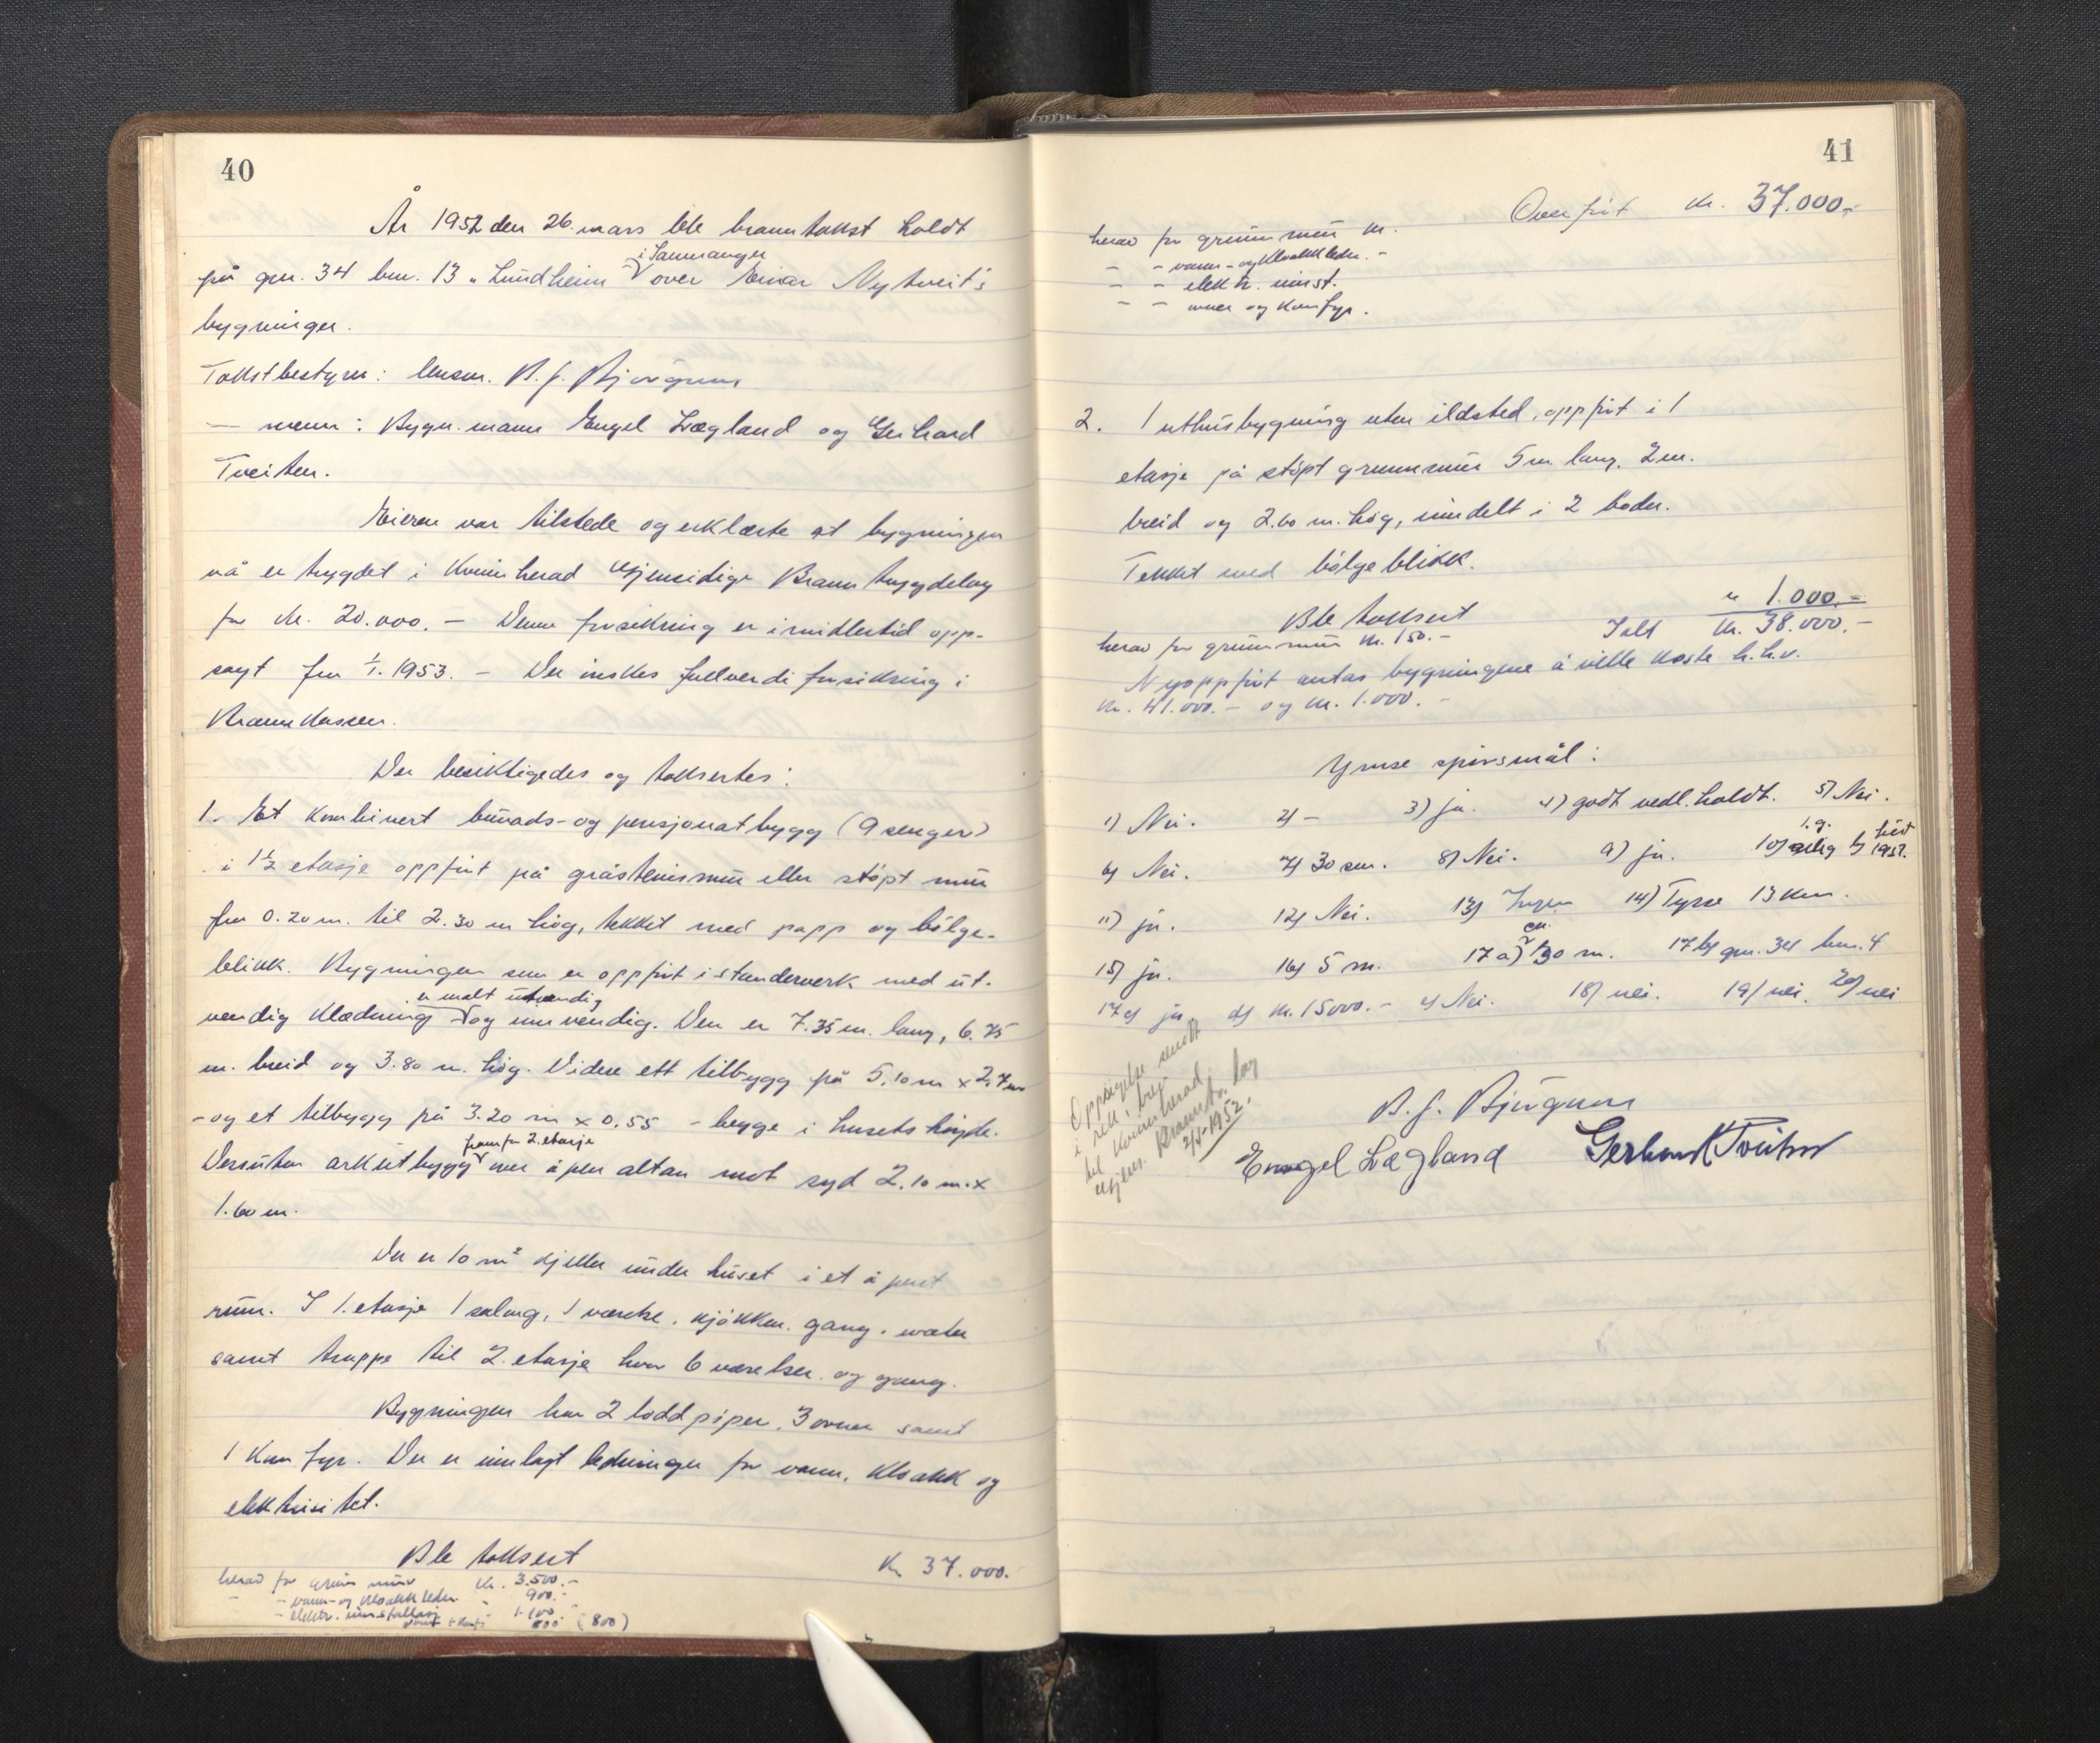 40
År 1952 den 26. mars ble branntakst holdt
i Samnanger
på gnr. 34 bnr. 13 „Lundheim" over Einar Nytveit's
bygninger.
Takstbestyrer: lensm.
— menn: Bygn.mann Engel Lægland og Gerhard
Tveiten.
Eieren var tilstede og erklærte at bygningen
nå er trygdet i Kvinnherad gjensidige Branntrygdelag
for kr. 20.000.- Denne forsikring er imidlertid opp-
sagt fra 1/1. 1953. - Der ønskes fullverdi forsikring i
Brannkassen.
Der besiktigedes og taksertes:
1. Et kombinert buvads- og pensjonatbygg (9 senger)
i 1½ etasje oppført på gråsteinsmur eller støpt mur
fra 0.20 m. til 2.30 m høg, tekket med papp og bølge-
blikk. Bygningen som er oppført i standerverk med ut-
er malt utvendig
vendig klædning og innvendig. Den er 7.35 m. lang, 6.75
m. breid og 3.80 m. høg. Videre ett tilbygg på 5.10 m x 2.7 m
- og et tilbygg på 3.20 m x 0.55 - begge i husets høgde.
fram for 2. etasje
Dessuten arkutbygg med åpen altan mot syd 2.10 m. x
1.60 m.
Der er 10 m² kjeller under huset i et åpent
rum. I 1. etasje 1 salong, 1 værelse, kjøkken, gang, water
samt trappe til 2. etasje hvor 6 værelser og gang.
Bygningen har 2 loddpiper, 3 ovner samt
1 komfyr. Der er innlagt ledninger for vann, kloakk og
elektrisitet.
Ble taksert Kr 37.000.-
herav for grunnmur kr. 3.500.-
- - vann- og kloakkledn. - 900.-
- elektr. installasj 1.100.-
(800)
41
Overført kr. 37.000.-
herav for grunnmur kr.
- - vann- og kloakkledn. -
- - elektr. innst.
- - ovner og komfyr.
2. 1 uthusbygning uten ildsted, oppført i 1
etasje på støpt grunnmur 5 m. lang, 2 m.
breid og 2.60 m. høg, inndelt i 2 boder.
Tekket med bølgeblikk.
Ble taksert " 1.000.-
herav for grunnmur kr. 150.- Ialt kr. 38.000.-
Nyoppført antas bygningene å ville koste h.h.v.
kr. 41.000.- og kr. 1.000.-
Ymse spørsmål:
1) Nei. 2) - 3) ja. 4) godt vedl.holdt. 5) Nei.
6) Nei. 7) 30 sm. 8) Nei. 9) ja. 10)
11) ja. 12) Nei. 13) Ingen 14) Tysse 13 km.
15) ja. 16) 5 m. 17 a) ca. 30 m. 17 b) gnr. 34 bnr. 4
17 c) ja d) kr. 15000.- e) Nei. 18) nei. 19) nei. 20) nei
Oppsigelse sendt
i rek. brev
til Kvinnherad
gjens. Branntr. lag
2/5-1952.
Engel Lægland Gerhard Tveiten